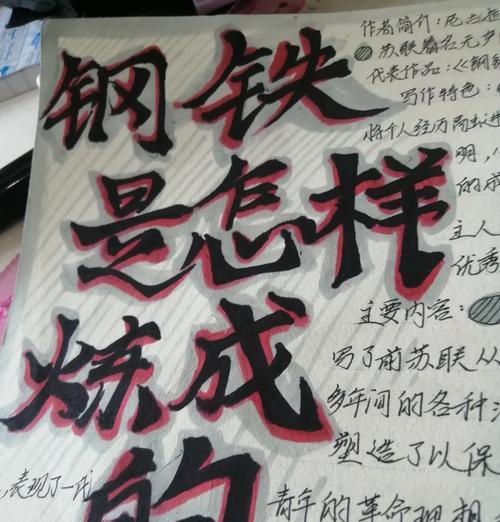 钢铁
是怎样
炼成
的
作者简介:
苏联著名
代表作品:《钢
写作特色:
将个人经历
明,
的成
主人
优秀
主要内容:
写了前苏联从
多年间的各种
塑造了以保
表现了一代
青年的革命理想